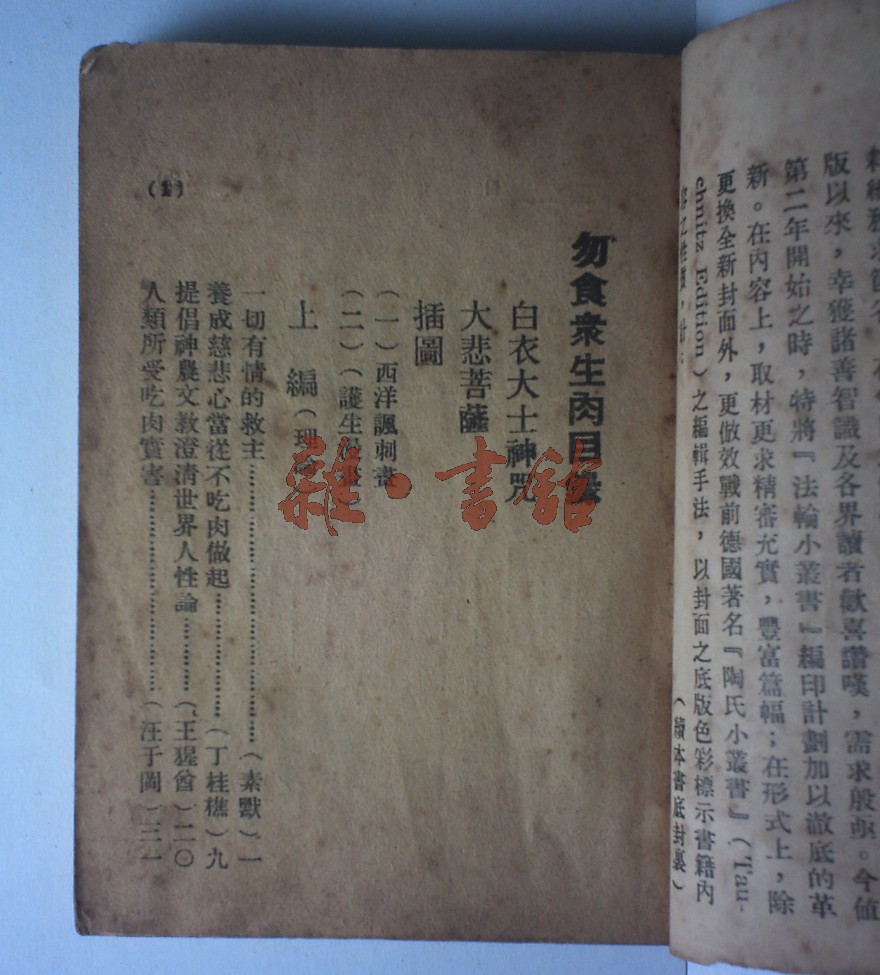 版以來，幸獲諸善智識及各界讀者歡喜讚嘆，需求殷亟。今值
第二年開始之時，特將『法輪小叢書』編印計劃加以澈底的革
新。在內容上，取材更求精審充實，豐富篇幅；在形式上，除
更換全新封面外，更倣效戰前德國著名『陶氏小叢書』（Tau-
chnitz Edition）之編輯手法，以封面之底版色彩標示書籍內
（續本書底封裏）
勿食衆生肉目
白衣大士神咒
大悲菩薩
插圖
（一）西洋諷刺畫
（二）（護生
上　編（理
一切有情的救主…………………（素獸）一
養成慈悲心當從不吃肉做起…………（丁桂樵）九
提倡神農文教澄清世界人性論………（王猩酋）二〇
人類所受吃肉實害…………………（汪于岡）三一
雜·書館